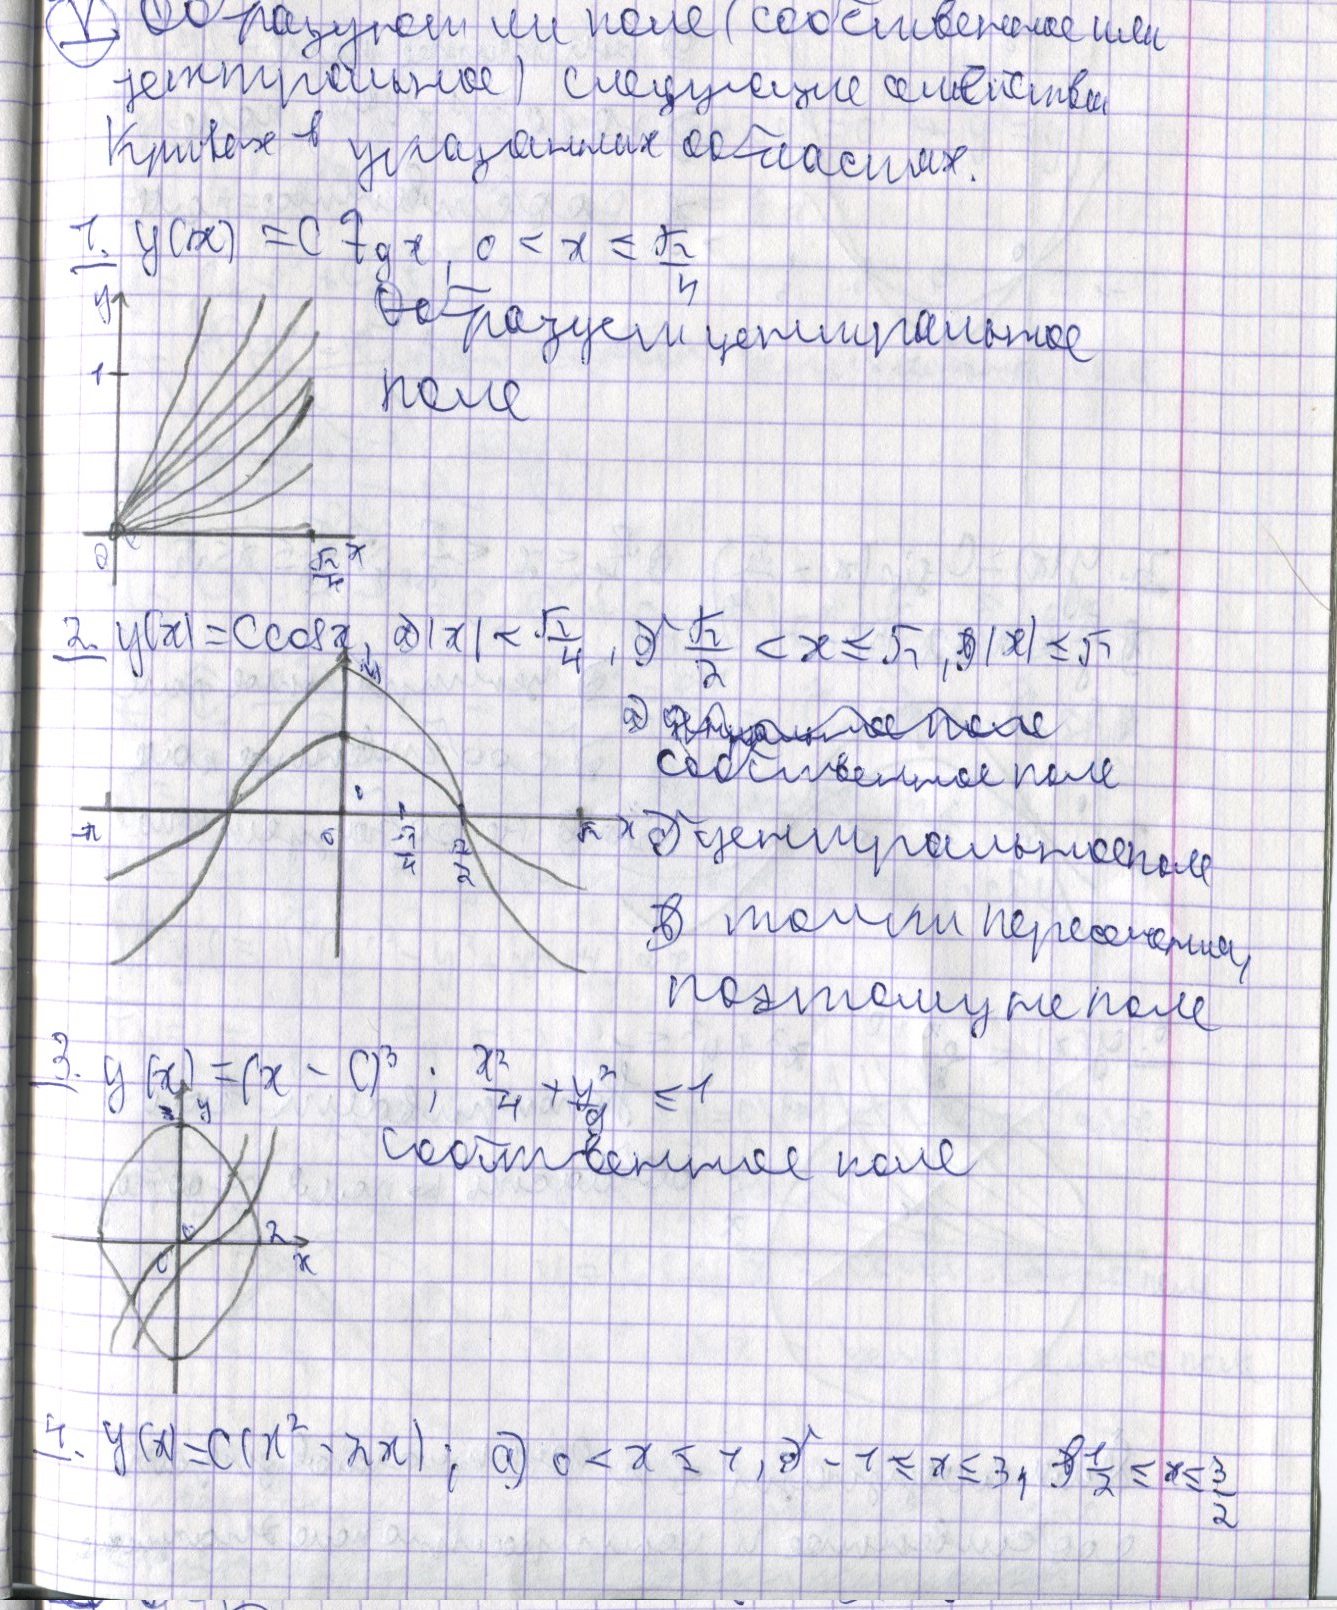 1. Образуют ли поле (собственное или
центральное) следующие семейства
Кривых в указанных областях.
1. y(x) = C tg x, 0 < x ≤ π/4
y
Образует центральное
1
поле
0
π/4
x
2. y(x) = C cos x, а) |x| < π/4, б) π/2 < x ≤ π, в) |x| ≤ π
y
а)
собственное поле
-π 0 π/4 π/2 π x
б) центральное поле
в) точки пересечения,
поэтому не поле
3. y(x) = (x - C)³; x²/4 + y²/9 ≤ 1
y
собственное поле
0 2 x
4. y(x) = C(x² - 2x); а) 0 < x ≤ 1, б) -1 ≤ x ≤ 3, в) 1/2 ≤ x ≤ 3/2